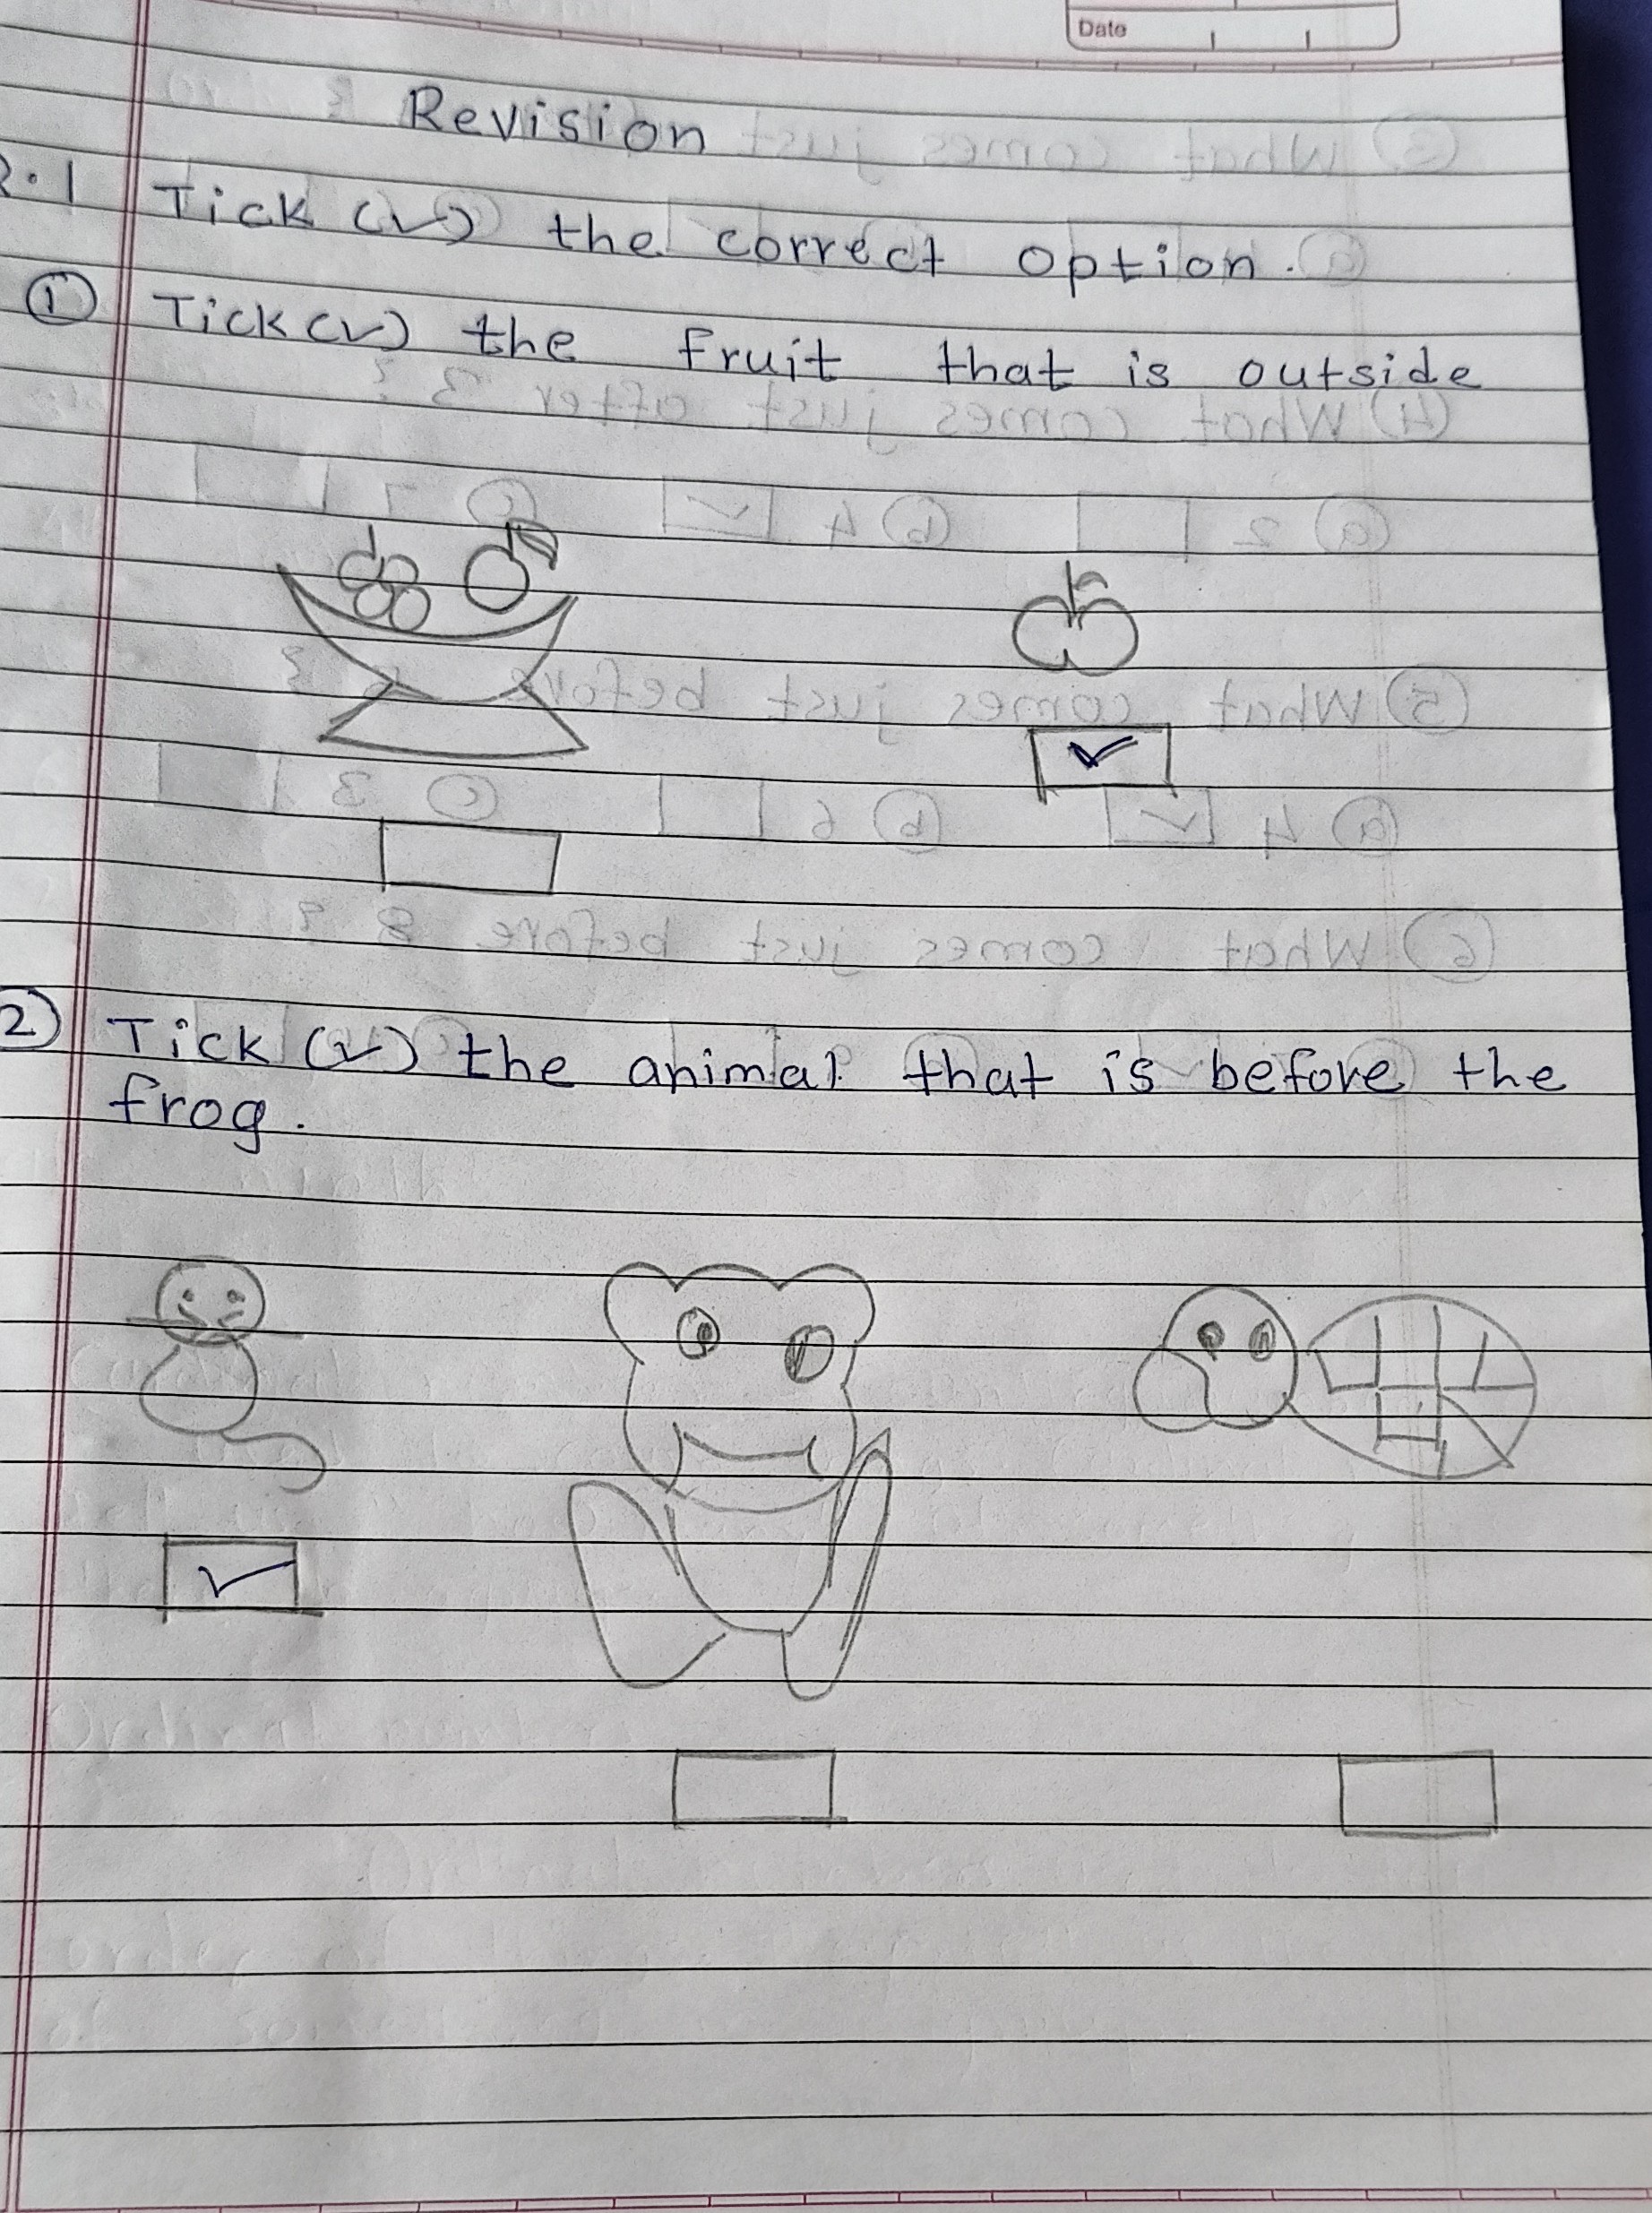 Date
Revision
Q.1 Tick (✓) the correct option.
① Tick (✓) the fruit that is outside
② Tick (✓) the animal that is before the
frog.